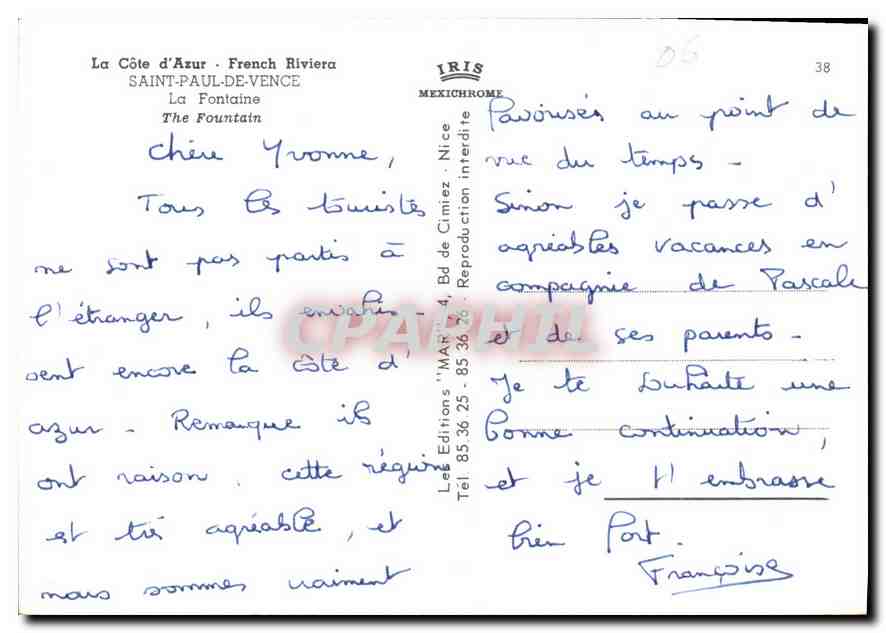 La Côte d'Azur - French Riviera
SAINT-PAUL-DE-VENCE
La Fontaine
The Fountain
IRIS
MEXICHROME
38
06
Chère Yvonne,
Tous les touristes
ne sont pas partis à
l'étranger, ils envahis-
sent encore la côte d'
azur - Remarque ils
ont raison, cette région
est très agréable, et
nous sommes vraiment
favorisés au point de
vue du temps -
Sinon je passe d'
agréables vacances en
compagnie de Pascale
et de ses parents -
Je te souhaite une
bonne continuation,
et je t'embrasse
bien fort.
Françoise
Les Editions "MAR" 4, Bd de Cimiez - Nice
Tél. 85.36.25 - 85.36.26 - Reproduction interdite
CPAPHIL